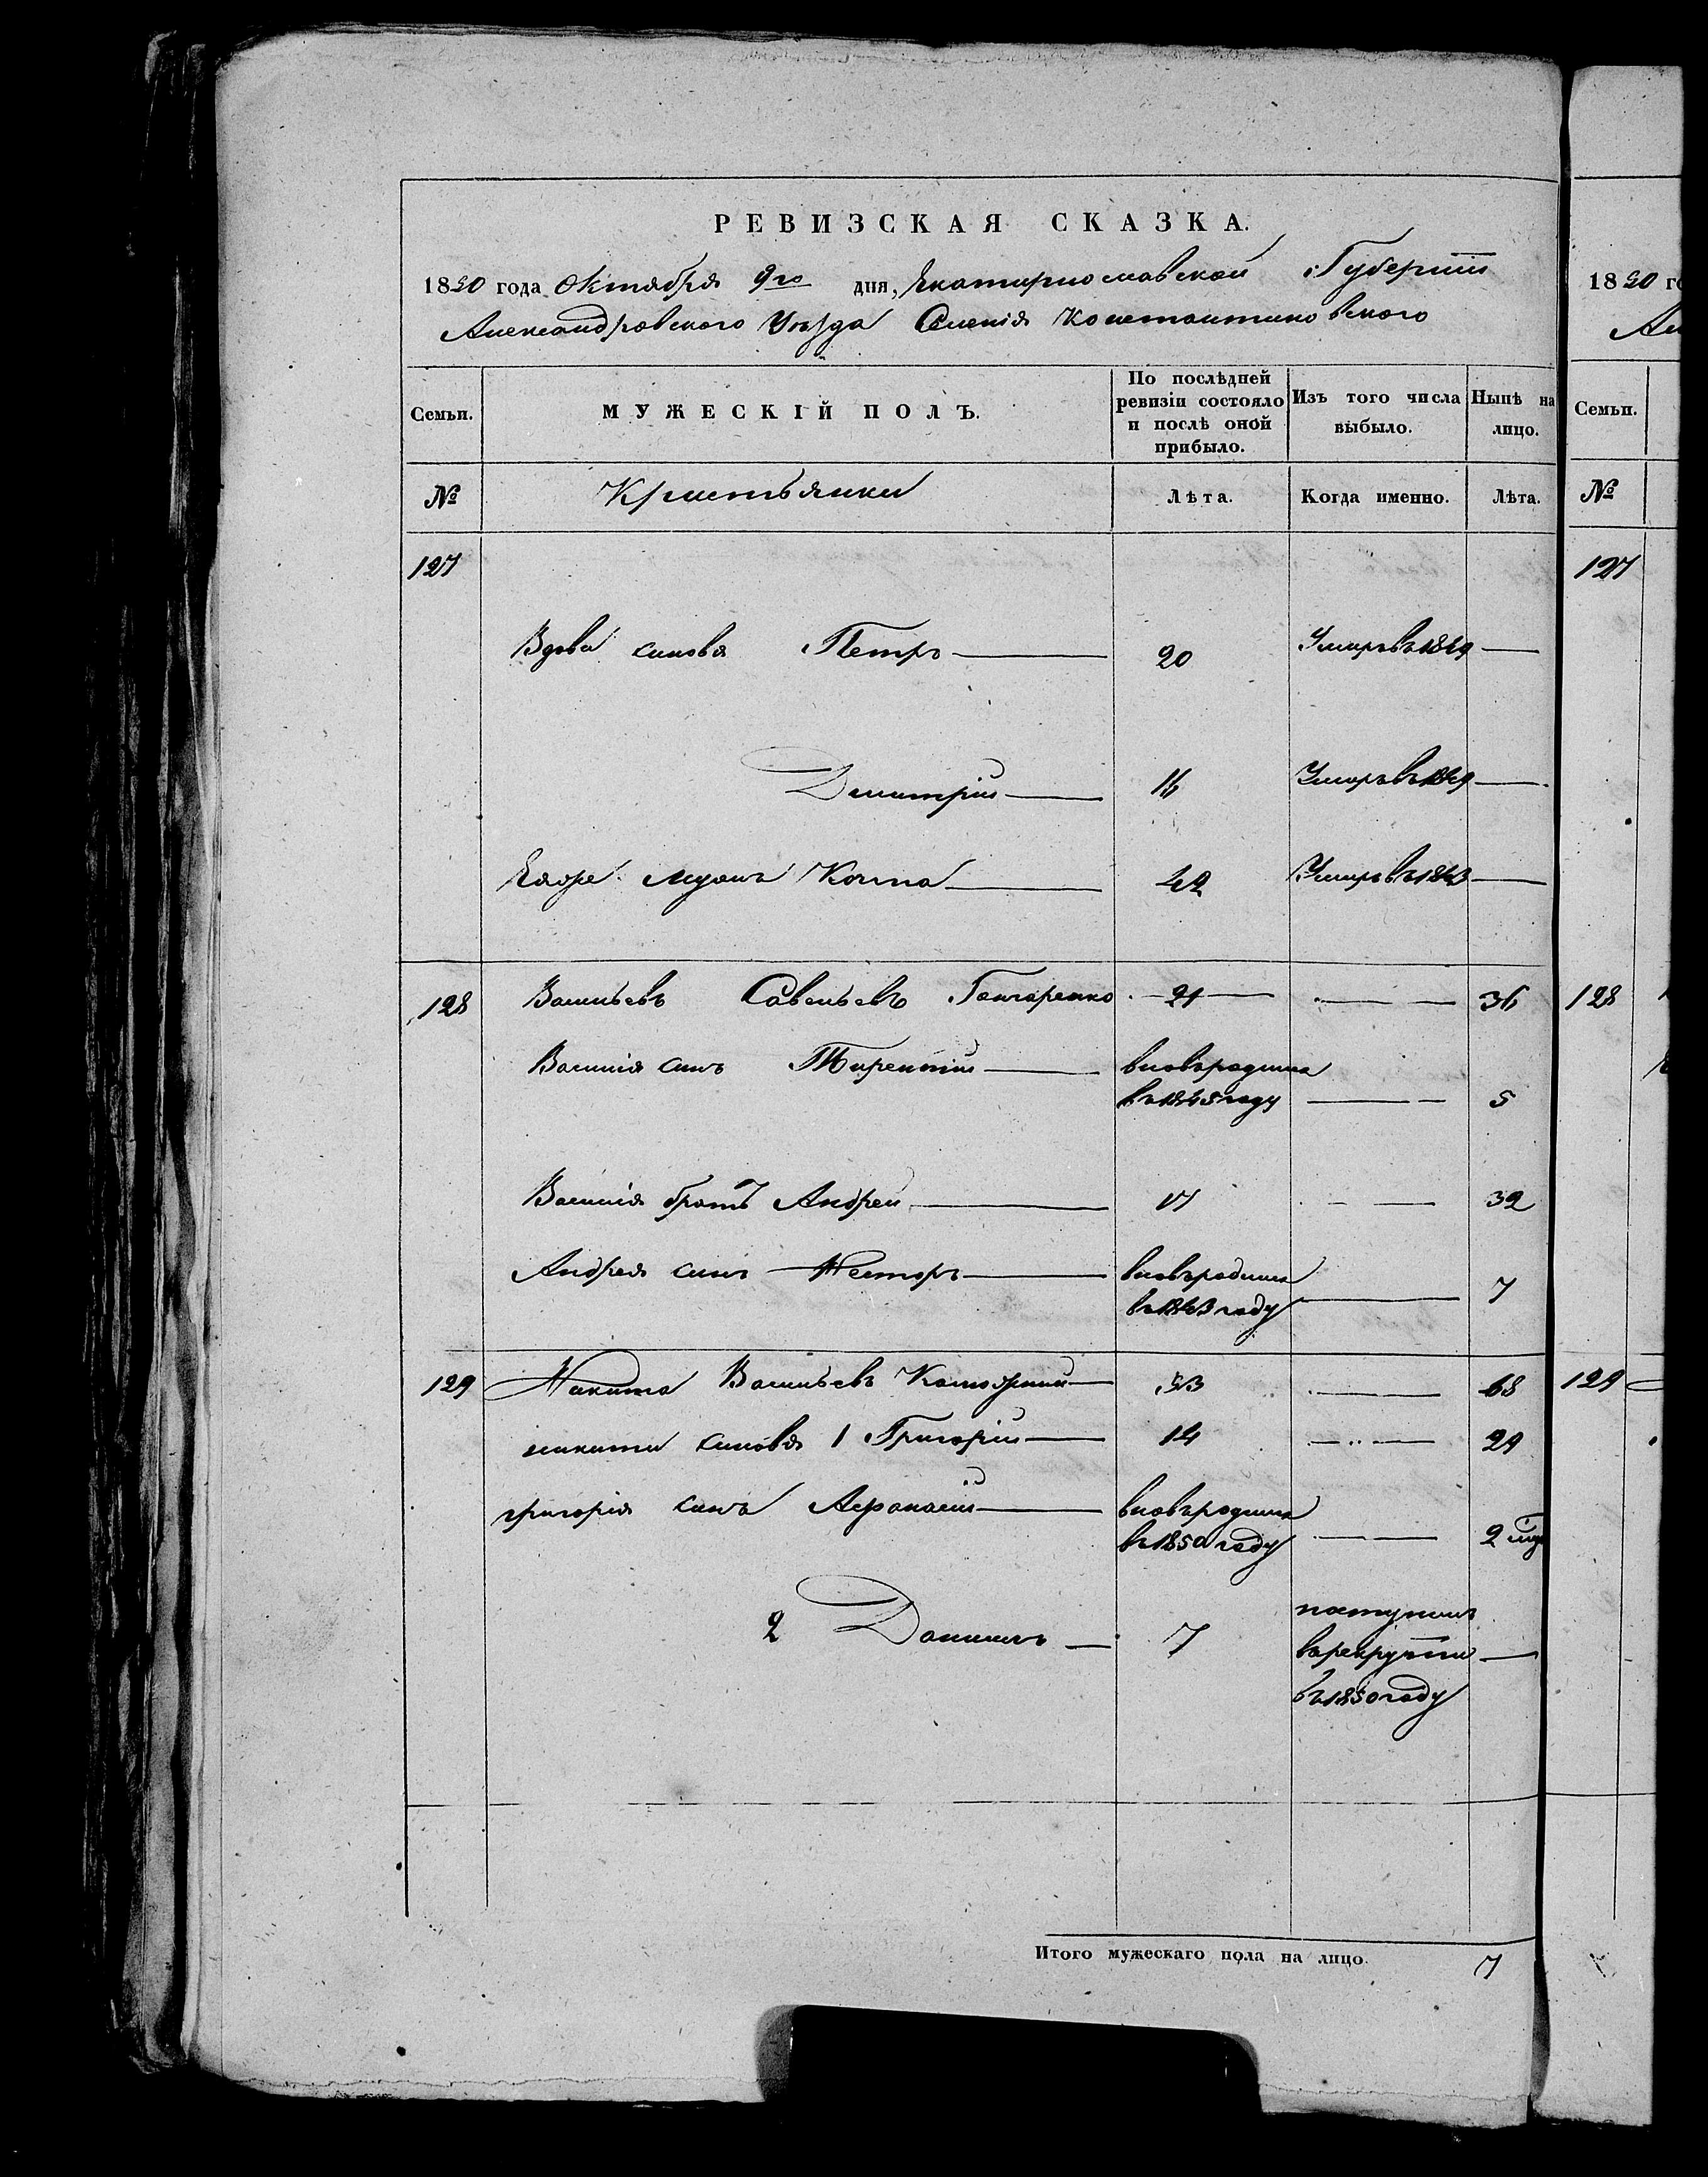 РЕВИЗСКАЯ СКАЗКА.
1850 года Октября 9го дня, Екатеринославской Губернии
Александровского Уезда Селения Константиновского
Семьи.
МУЖЕСКІЙ ПОЛЪ.
По послѣдней ревизіи состояло и послѣ оной прибыло.
Изъ того числа выбыло.
Нынѣ на лицо.
№
Крестьянки
Лѣта.
Когда именно.
Лѣта.
127
Вдовы синовя Петръ 20 Умеръ въ 1849
Дмитрій 16 Умеръ въ 1849
42 Умеръ въ 1843
128 Васильевъ Савельевъ Гончаренко 21 36
Василія синъ Терентій вновьрожден
въ 1845 году 5
Василія братъ Андрей 17 32
Андрея синъ Несторъ вновьрожден
въ 1843 году 7
129 Никита Васильевъ 53 68
никити синовя 1 Григорій 14 29
григорія синъ Афанасій вновьрожден
въ 1850 году 2
2 Данилъ 7 поступилъ
въ рекруты
въ 1850 году
Итого мужескаго пола на лицо. 7
1850 го
Ал
Семьи.
№
127
128
129